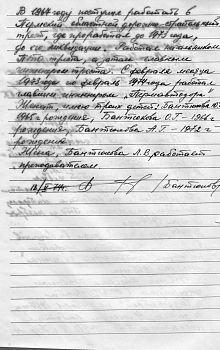 В 1964 году поступил работать в
Пермский областной дорожно-строительный
трест, где проработал до 1973 года,
до его ликвидации. Работал начальником
ПТО треста, а затем главным
инженером треста. С февраля месяца
1973 года по февраль 1974 года работал
главным инженером "Пермавтодора"
Женат, имею троих детей: Бантюкова Ю.
1965 г рождения, Бантюкова О.Г - 1966 г
рождения, Бантюкова А.Г. - 1972 г.
рождения
Жена, Бантюкова Л.В. работает
преподавателем